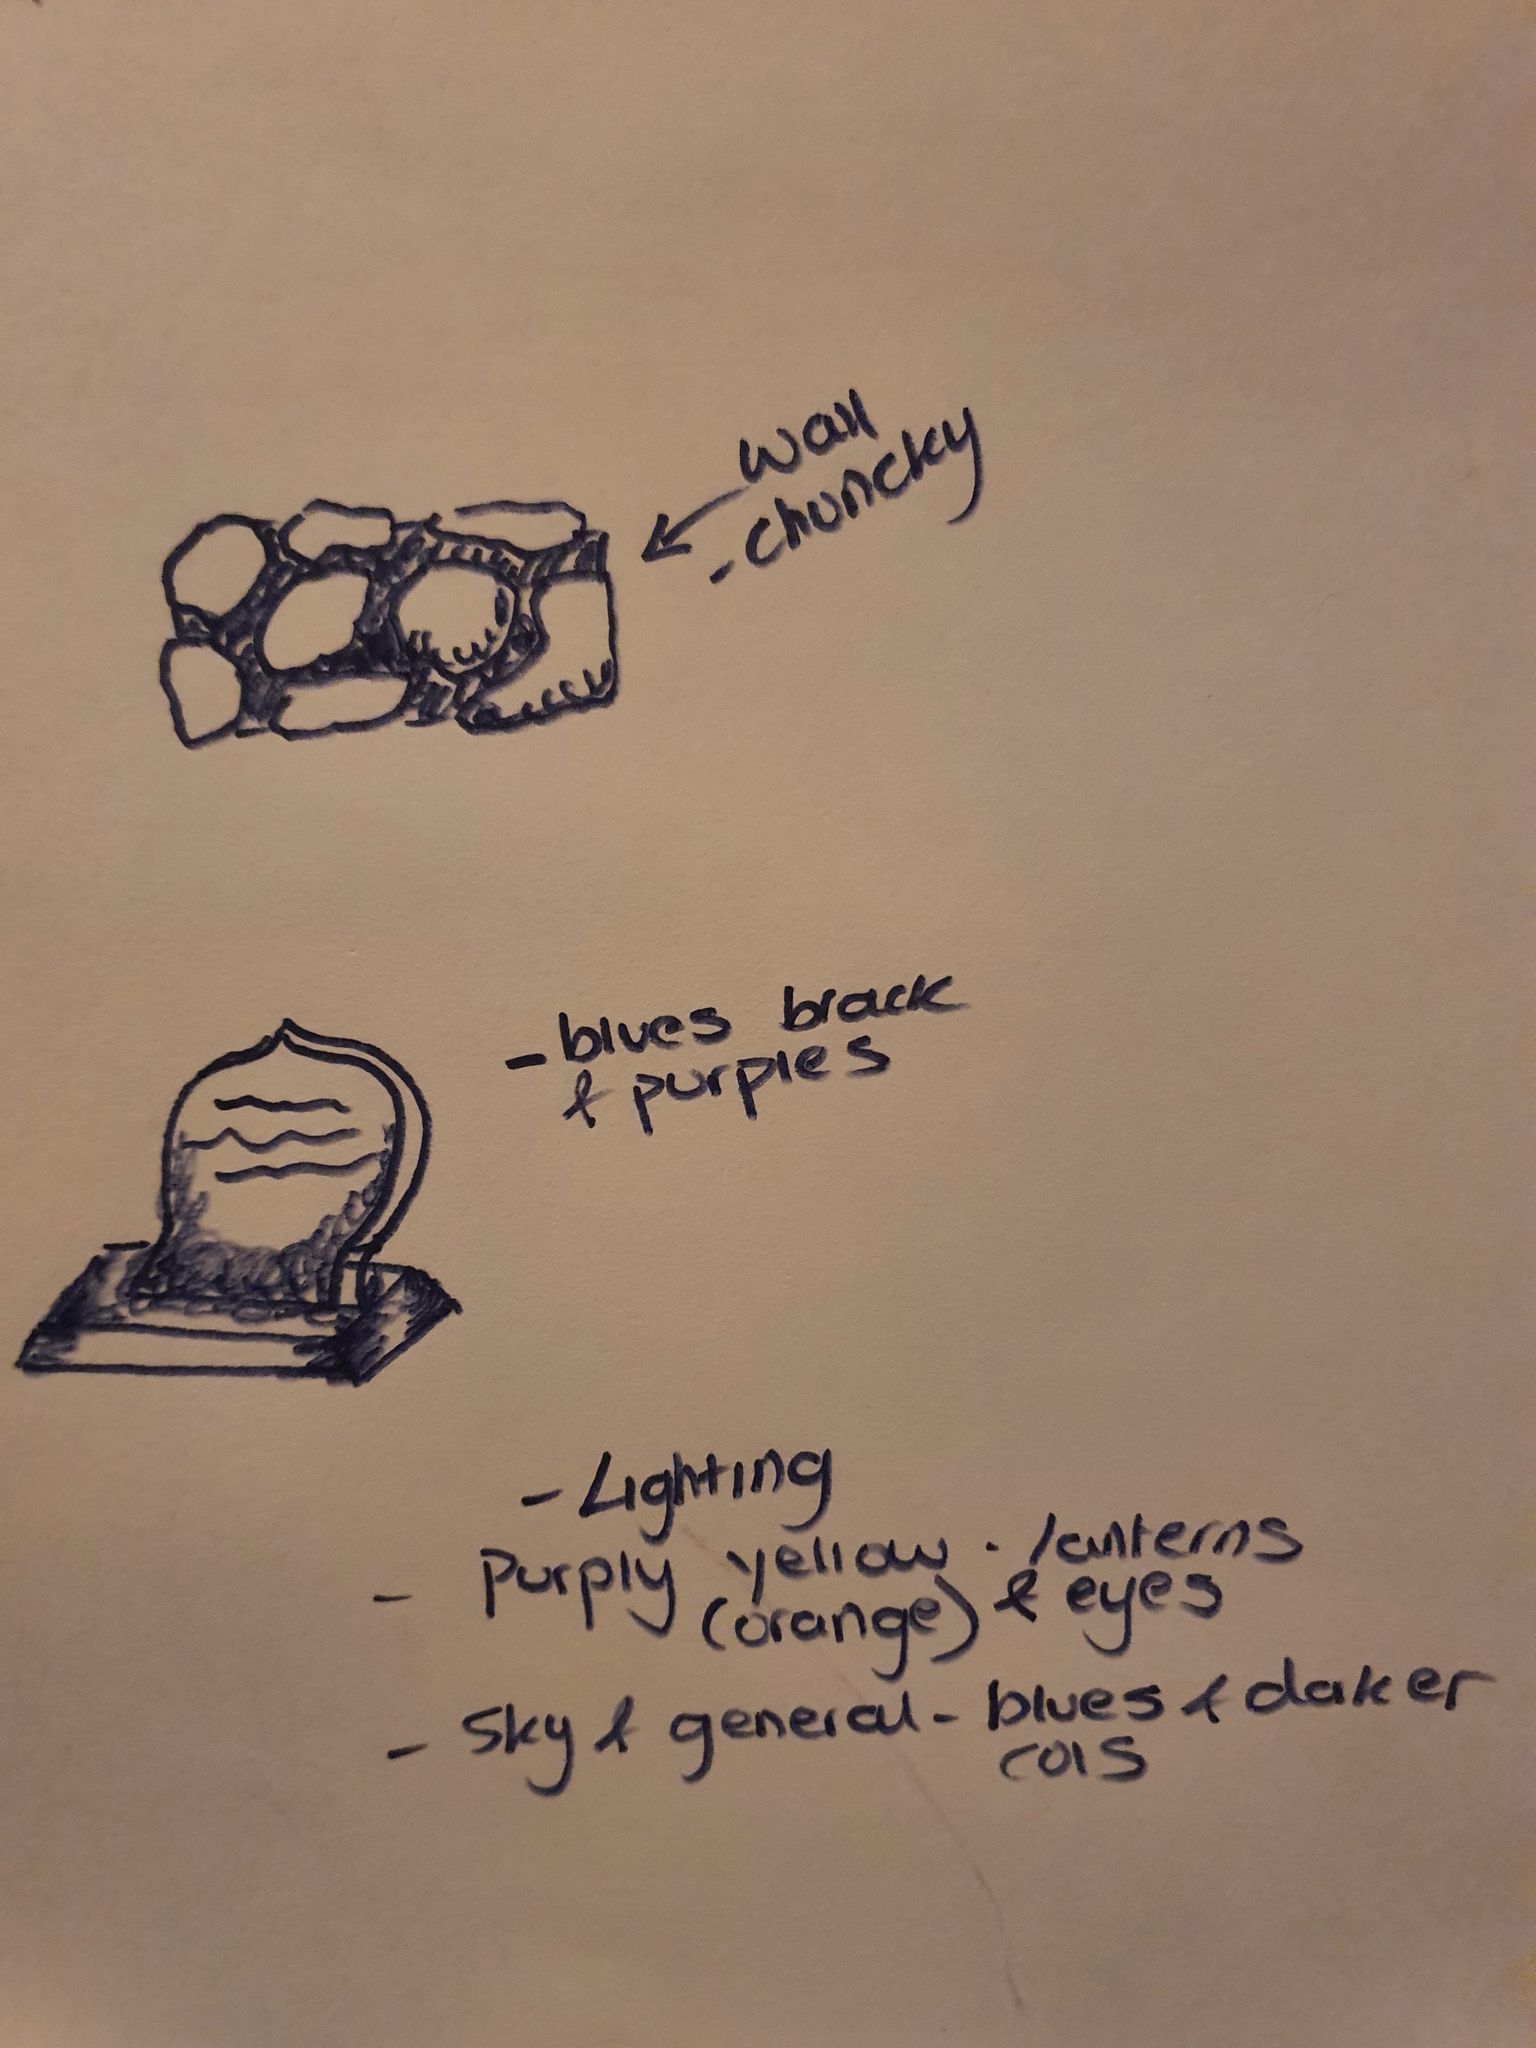 wall
- chuncky
- blues black
& purples
- Lighting
- Purply yellow · lanterns
(orange) & eyes
- Sky & general - blues & daker
cols